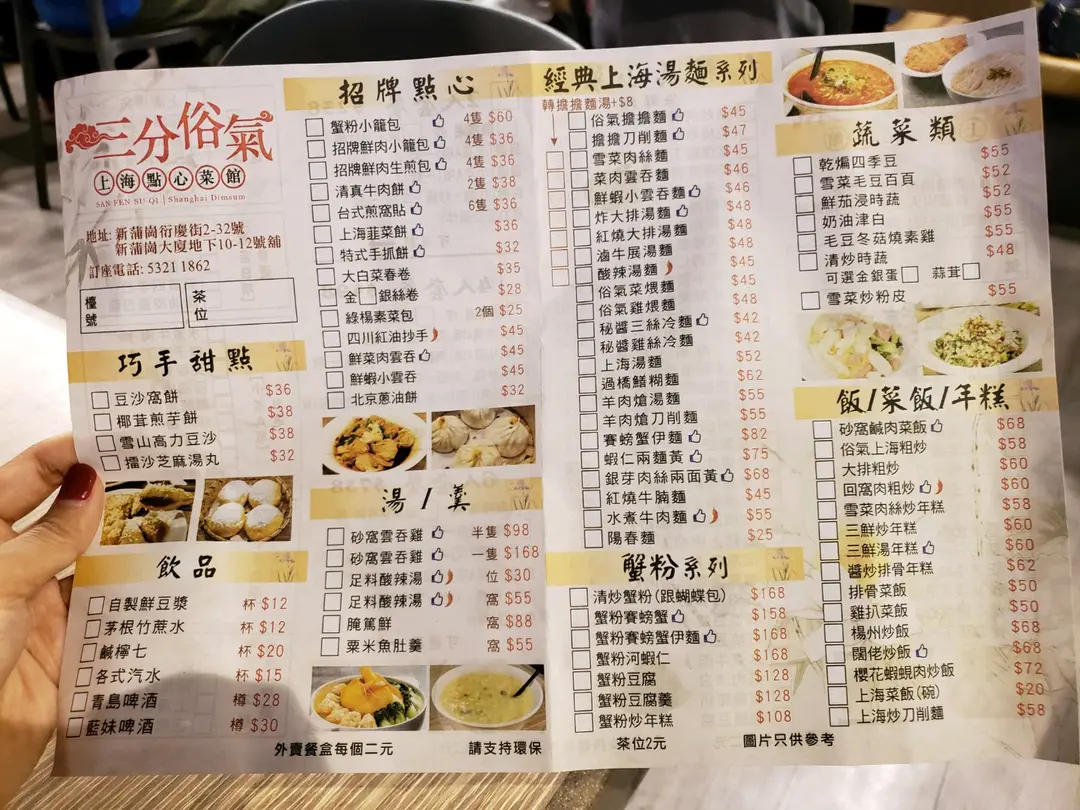 三分俗氣
上海點心菜館
SAN FEN SU QI | Shanghai Dimsum
地址: 新蒲崗衍慶街2-32號
新蒲崗大廈地下10-12號舖
訂座電話: 5321 1862
檯號
茶位
巧手甜點
豆沙窩餅 $36
椰茸煎芋餅 $38
雪山高力豆沙 $38
擂沙芝麻湯丸 $32
飲品
自製鮮豆漿 杯 $12
茅根竹蔗水 杯 $12
鹹檸七 杯 $20
各式汽水 杯 $15
青島啤酒 樽 $28
藍妹啤酒 樽 $30
招牌點心
蟹粉小籠包 4隻 $60
招牌鮮肉小籠包 4隻 $36
招牌鮮肉生煎包 4隻 $36
清真牛肉餅 2隻 $38
台式煎窩貼 6隻 $36
上海韮菜餅 $36
特式手抓餅 $32
大白菜春卷 $35
金 銀絲卷 $28
綠楊素菜包 2個 $25
四川紅油抄手 $45
鮮菜肉雲吞 $45
鮮蝦小雲吞 $45
北京蔥油餅 $32
湯/羹
砂窩雲吞雞 半隻 $98
砂窩雲吞雞 一隻 $168
足料酸辣湯 位 $30
足料酸辣湯 窩 $55
腌篤鮮 窩 $88
粟米魚肚羹 窩 $55
經典上海湯麵系列
轉擔擔麵湯+$8
俗氣擔擔麵 $45
擔擔刀削麵 $47
雪菜肉絲麵 $45
菜肉雲吞麵 $46
鮮蝦小雲吞麵 $46
炸大排湯麵 $48
紅燒大排湯麵 $48
滷牛展湯麵 $48
酸辣湯麵 $48
俗氣菜煨麵 $45
俗氣雞煨麵 $48
秘醬三絲冷麵 $42
秘醬雞絲冷麵 $42
上海湯麵 $52
過橋鱔糊麵 $62
羊肉熗湯麵 $55
羊肉熗刀削麵 $55
賽螃蟹伊麵 $82
蝦仁兩麵黃 $75
銀芽肉絲兩面黃 $68
紅燒牛腩麵 $45
水煮牛肉麵 $55
陽春麵 $25
蟹粉系列
清炒蟹粉(跟蝴蝶包) $168
蟹粉賽螃蟹 $158
蟹粉賽螃蟹伊麵 $168
蟹粉河蝦仁 $168
蟹粉豆腐 $128
蟹粉豆腐羹 $128
蟹粉炒年糕 $108
蔬菜類
乾煸四季豆 $55
雪菜毛豆百頁 $52
鮮茄浸時蔬 $52
奶油津白 $55
毛豆冬菇燒素雞 $55
清炒時蔬 $48
可選金銀蛋 蒜茸
雪菜炒粉皮 $55
飯/菜飯/年糕
砂窩鹹肉菜飯 $68
俗氣上海粗炒 $58
大排粗炒 $60
回窩肉粗炒 $60
雪菜肉絲炒年糕 $58
三鮮炒年糕 $60
三鮮湯年糕 $60
醬炒排骨年糕 $62
排骨菜飯 $50
雞扒菜飯 $50
楊州炒飯 $68
闊佬炒飯 $68
櫻花蝦蜆肉炒飯 $72
上海菜飯(碗) $20
上海炒刀削麵 $58
外賣餐盒每個二元 請支持環保 茶位2元 圖片只供參考